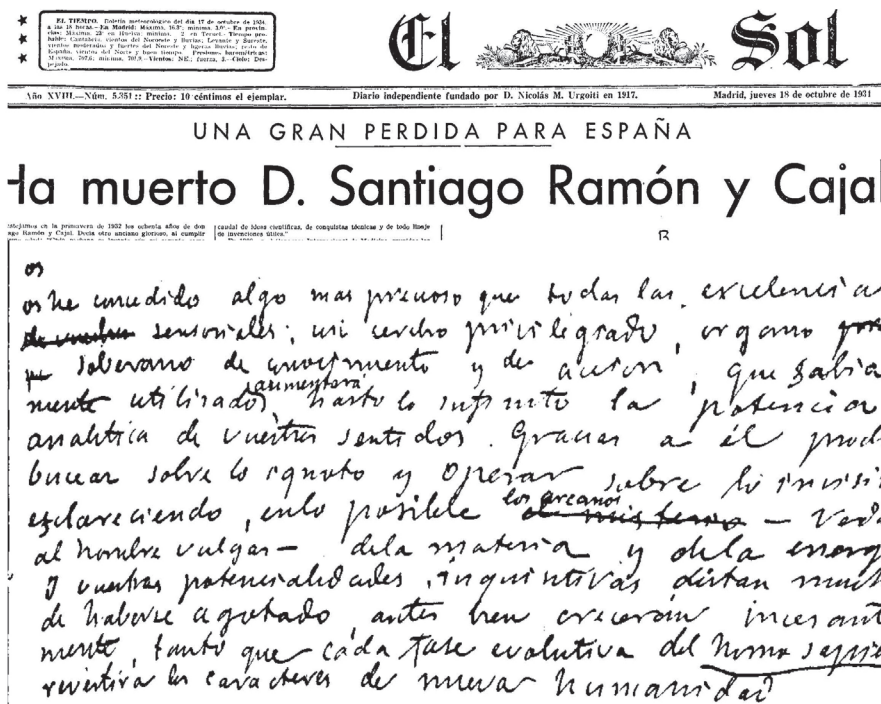 EL TIEMPO. Boletín meteorológico del día 17 de octubre de 1934,
a las 18 horas.—En Madrid: Máxima, 16,3°; mínima, 3,0°.—En provin-
cias: Máxima, 23° en Huelva; mínima, 2 en Teruel.—Tiempo pro-
bable: Cantabria, vientos del Noroeste y lluvias; Levante y Sureste,
vientos moderados y fuertes del Noroeste y ligeras lluvias; resto de
España, vientos del Norte y buen tiempo. Presiones barométricas:
Máxima, 707,6; mínima, 701,9.—Vientos: NE.; fuerza, 3.—Cielo: Des-
pejado.
El Sol
Año XVIII.—Núm. 5.351 :: Precio: 10 céntimos el ejemplar.
Diario independiente fundado por D. Nicolás M. Urgoiti en 1917.
Madrid, jueves 18 de octubre de 1931
UNA GRAN PERDIDA PARA ESPAÑA
Ha muerto D. Santiago Ramón y Cajal
en la primavera de 1932 los ochenta años de don
ago Ramón y Cajal. Decía otro anciano glorioso, al cumplir
caudal de ideas científicas, de conquistas técnicas y de todo linaje
de invenciones útiles."
os
os he concedido algo mas precioso que todas las excelencias
de vuestra sensoriales; un cerebro privilegiado, organo
soberano de conocimiento y de accion, que sabia
mente utilizado, aumentará hasta lo infinito la potencia
analitica de vuestros sentidos. Gracias a él podr
bucear sobre lo ignoto y operar sobre lo invisi
esclareciendo, en lo posible los arcanos de misterio — veda
al hombre vulgar — de la materia y de la energ
Y vuestras potencialidades inquisitivas distan much
de haberse agotado, antes bien crecerán incesant
mente, tanto que cada fase evolutiva del homo sapie
revestirá los caracteres de nueva humanidad